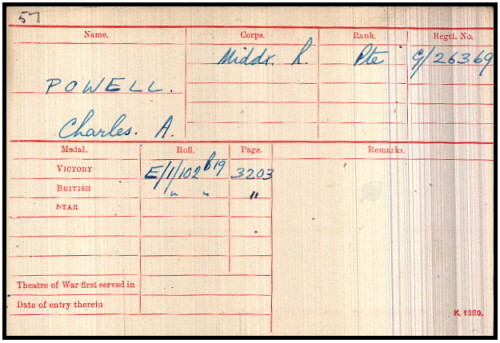 57
Name. Corps. Rank. Regtl. No.
Middx. R. Pte G/26369
POWELL.
Charles. A.
Medal. Roll. Page. Remarks.
VICTORY E/1/102 B19 3203
BRITISH " " "
STAR
Theatre of War first served in
Date of entry therein
K. 1380.